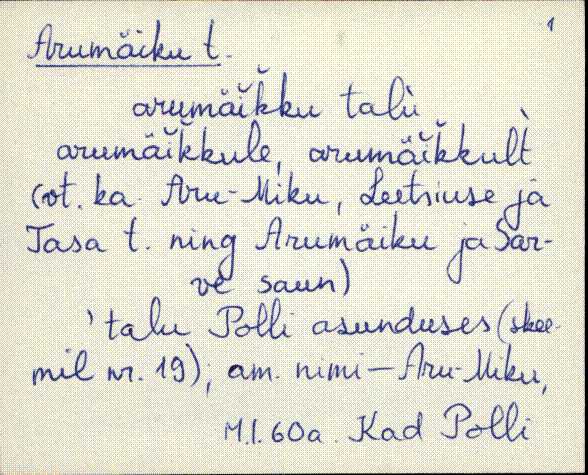 1
Arumäiku t.
arumäĭk̆ku talù
arumäĭk̆kule, arumäĭk̆kul̀t
(vt. ka Aru-Miku, Leetsiuse ja
Tasa t. ning Arumäiku ja Sar-
ve saun)
'talu Polli asunduses (skee-
mil nr. 19), am. nimi — Aru-Miku,
M.I. 60a. Kad Polli